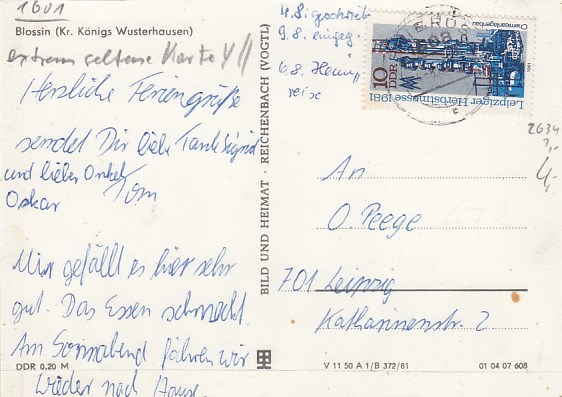 1601
Blossin (Kr. Königs Wusterhausen)
extrem seltene Karte !!
Herzliche Feriengrüße
sendet Dir liebe Tante Sigrid
und lieber Onkel
Oskar Tom
Mir gefällt es hier sehr
gut. Das Essen schmeckt.
Am Sonnabend fahren wir
wieder nach Hause.
DDR 0,20 M
BILD UND HEIMAT · REICHENBACH (VOGTL)
4.8. geschrieb
9.8. eingeg.
6.8. Heim
reise
10
DDR
Leipziger Herbstmesse 1981
Chemieanlagenbau
1981
2634
4,-
An
O. Peege
701 Leipzig
Katharinenstr. 2
V 11 50 A 1/B 372/81
01 04 07 608